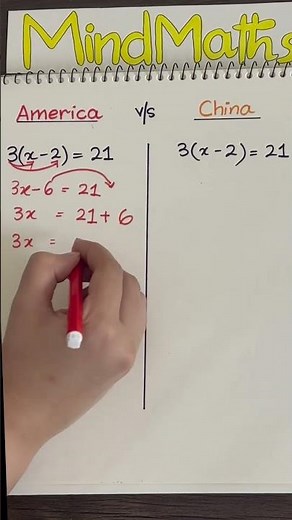 MindMaths
America v/s China
3(x-2) = 21
3x-6 = 21
3x = 21+6
3x =
3(x-2) = 21